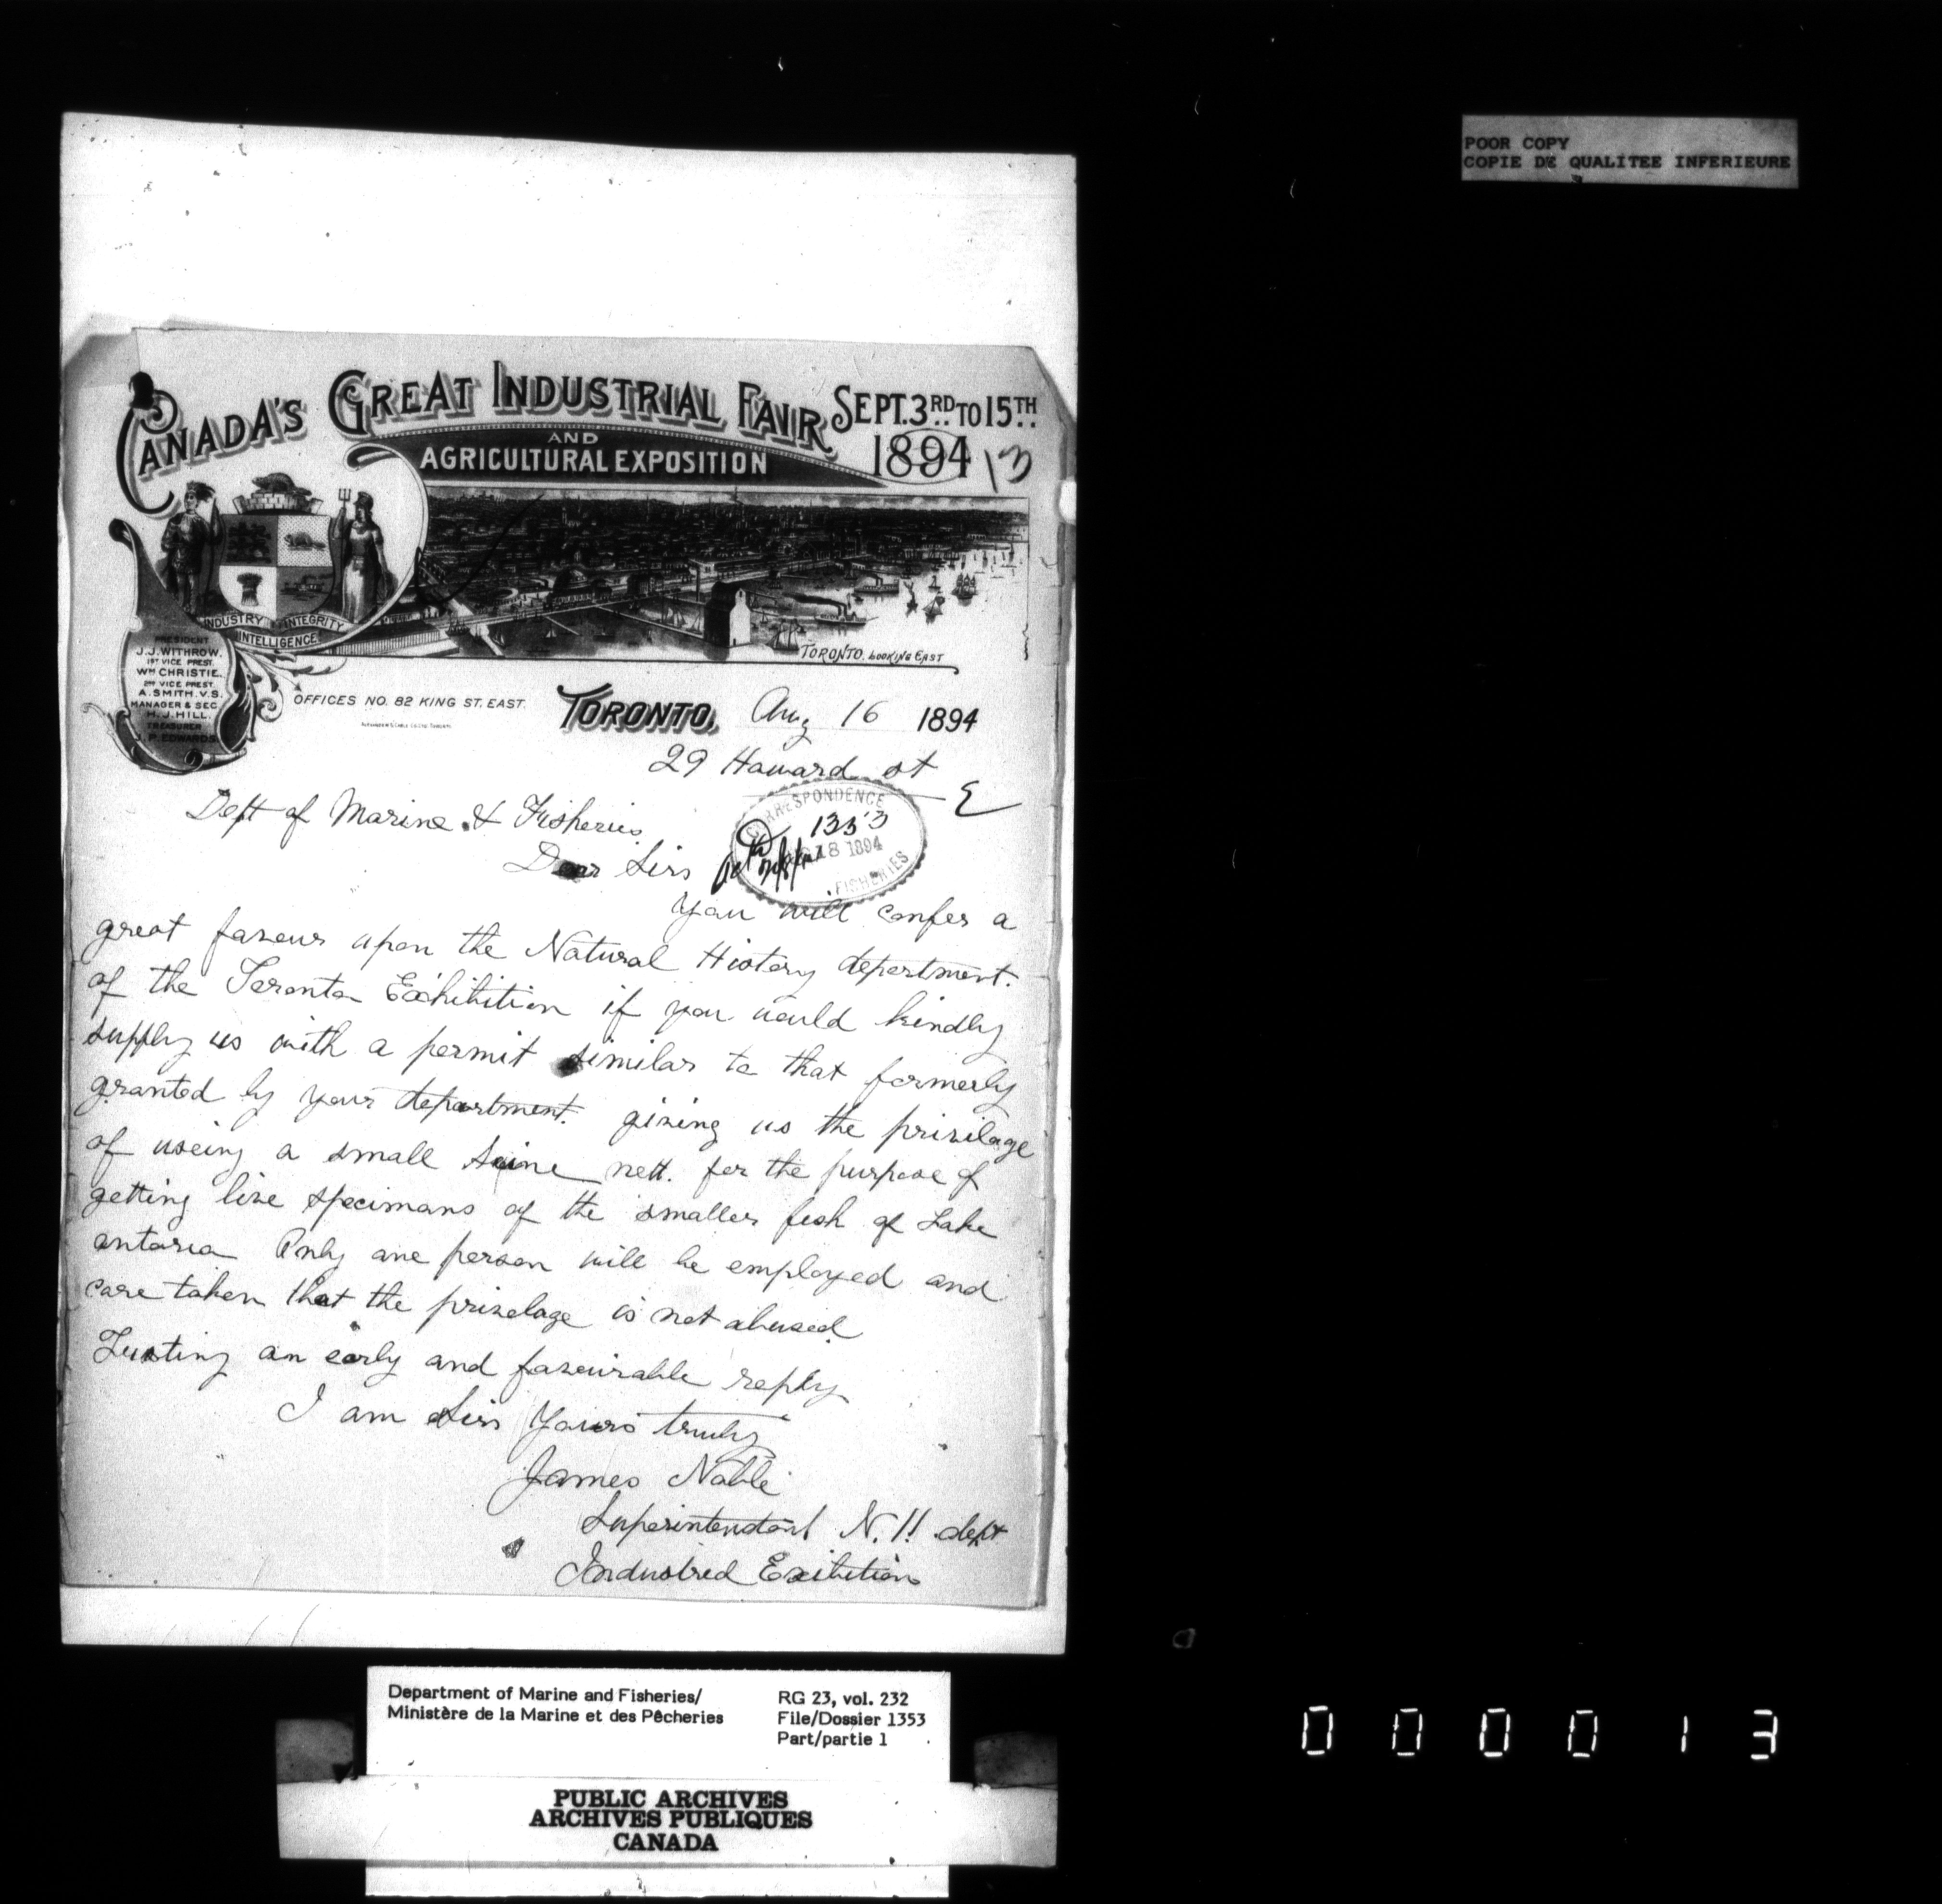 POOR COPY
COPIE DE QUALITEE INFERIEURE
CANADA'S GREAT INDUSTRIAL FAIR SEPT. 3RD TO 15TH
AND
AGRICULTURAL EXPOSITION
1894
13
INDUSTRY INTEGRITY
INTELLIGENCE
TORONTO, LOOKING EAST
PRESIDENT
J.J. WITHROW.
1ST VICE PREST.
WM CHRISTIE.
2ND VICE PREST.
A. SMITH. V.S.
MANAGER & SEC.
H. J. HILL.
TREASURER
J. P. EDWARDS
OFFICES NO. 82 KING ST. EAST.
TORONTO, Aug 16 1894
29 Howard st
E
Dept of Marine & Fisheries
CORRESPONDENCE
1353
18 1894
FISHERIES
Dear Sirs
You will confer a
great favour upon the Natural History department.
of the Toronto Exhibition if you would kindly
supply us with a permit similar to that formerly
granted by your department. giving us the privilage
of useing a small Seine nett. for the purpose of
getting live specimans of the smaller fish of Lake
ontario Only one person will be employed and
care taken that the privelage is not abused
Tusting an early and favourable reply
I am Sirs Yours truly
James Noble
Superintendant N.H. dept
Industred Exibition
Department of Marine and Fisheries/
Ministère de la Marine et des Pêcheries
RG 23, vol. 232
File/Dossier 1353
Part/partie 1
PUBLIC ARCHIVES
ARCHIVES PUBLIQUES
CANADA
000013